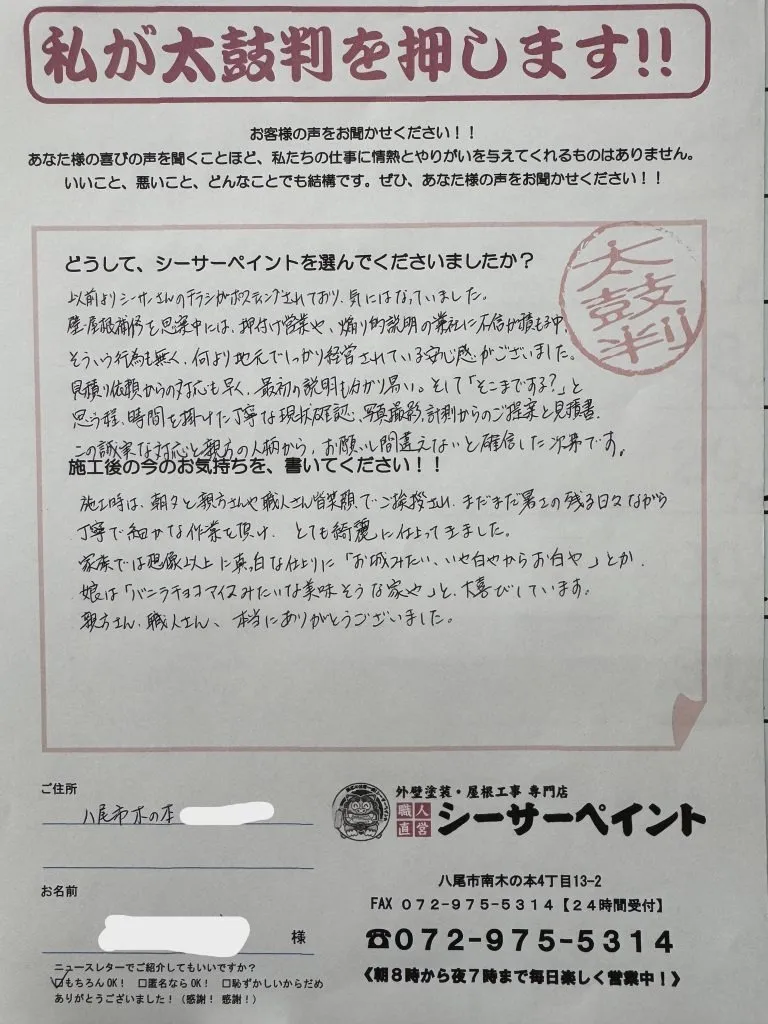 私が太鼓判を押します!!
お客様の声をお聞かせください！！
あなた様の喜びの声を聞くことほど、私たちの仕事に情熱とやりがいを与えてくれるものはありません。
いいこと、悪いこと、どんなことでも結構です。ぜひ、あなた様の声をお聞かせください！！
太鼓判
どうして、シーサーペイントを選んでくださいましたか？
以前よりシーサーさんのチラシがポスティングされており、気にはなっていました。
壁・屋根補修を思案中には、押付け営業や、煽り的説明の業社に不信が積もる中、
そういう行為も無く、何より地元でしっかり経営されている安心感がございました。
見積り依頼からの対応も早く、最初の説明も分かり易い。そして「そこまでする？」と
思う程、時間を掛けた丁寧な現状確認、写真撮影、計測からのご提案と見積書。
この誠実な対応と親方の人柄から、お願いし間違えないと確信した次第です。
施工後の今のお気持ちを、書いてください！！
施工時は、朝夕と親方さんや職人さん皆笑顔でご挨拶され、まだまだ暑さの残る日々ながら
丁寧で細かな作業を頂け、とても綺麗に仕上ってきました。
家族では想像以上に真っ白な仕上りに「お城みたい、いや白やからお白や」とか、
娘は「バニラチョコアイスみたいな美味そうな家や」と、大喜びしています。
親方さん、職人さん、本当にありがとうございました。
ご住所
八尾市木の本
お名前
様
ニュースレターでご紹介してもいいですか？
☑もちろんOK！ □匿名ならOK！ □恥ずかしいからだめ
ありがとうございました！（感謝！感謝！）
外壁塗装・屋根工事 専門店
職人直営 シーサーペイント
八尾市南木の本4丁目13-2
FAX 072-975-5314【24時間受付】
☎072-975-5314
《朝8時から夜7時まで毎日楽しく営業中！》